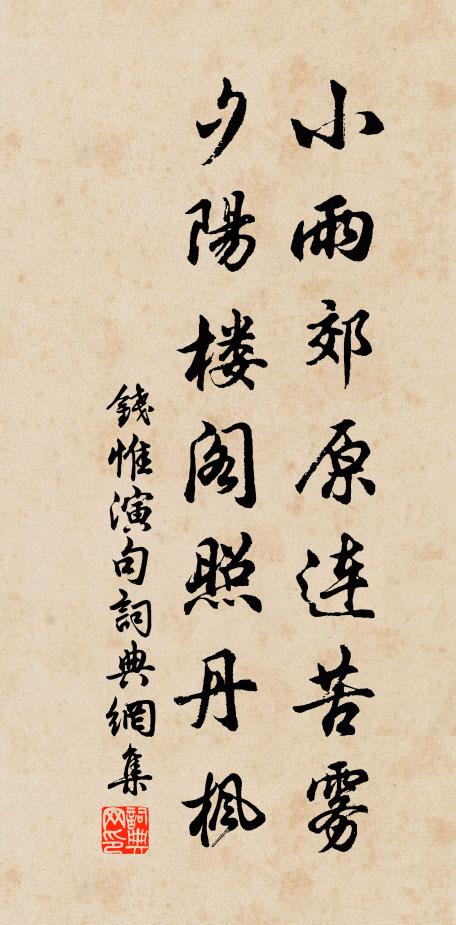 小雨郊原连苦雾
夕陽楼阁照丹枫
錢惟演句詞典網集
詞典网印